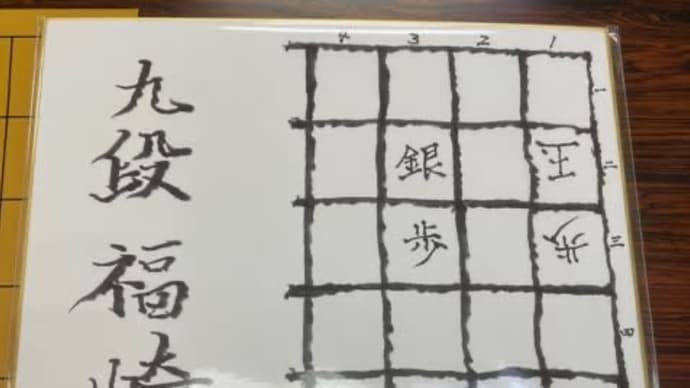 九段 福崎
4 3 2 1
一
銀 玉
二
歩 歩
三
四